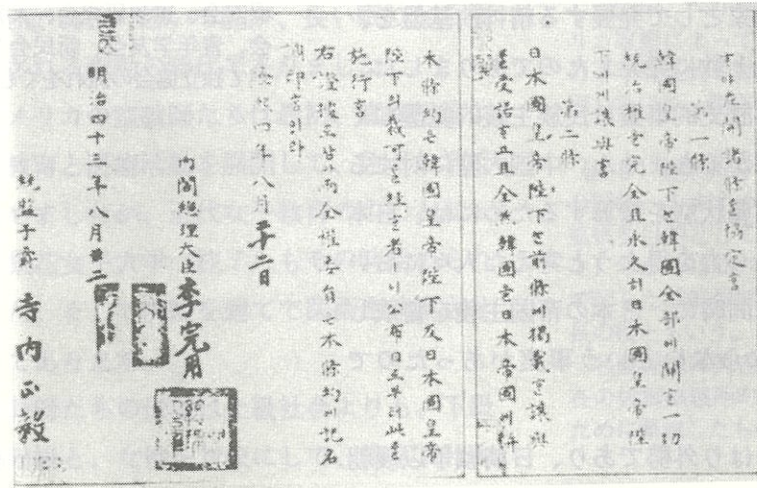 下에左開諸條를協定홈
第一條
韓國皇帝陛下는韓國全部에關한一切
統治權을完全且永久히日本國皇帝陛
下에게讓與홈
第二條
日本國皇帝陛下는前條에揭載한讓與
를受諾하고且全然韓國을日本帝國에
本條約은韓國皇帝陛下及日本國皇帝
陛下의裁可를經한者니公布日로부터此를
施行홈
右證據로삼아兩全權委員은本條約에記名
調印홈이라
隆熙四年八月二十二日
內閣總理大臣李完用
明治四十三年八月廿二日
統監子爵 寺內正毅